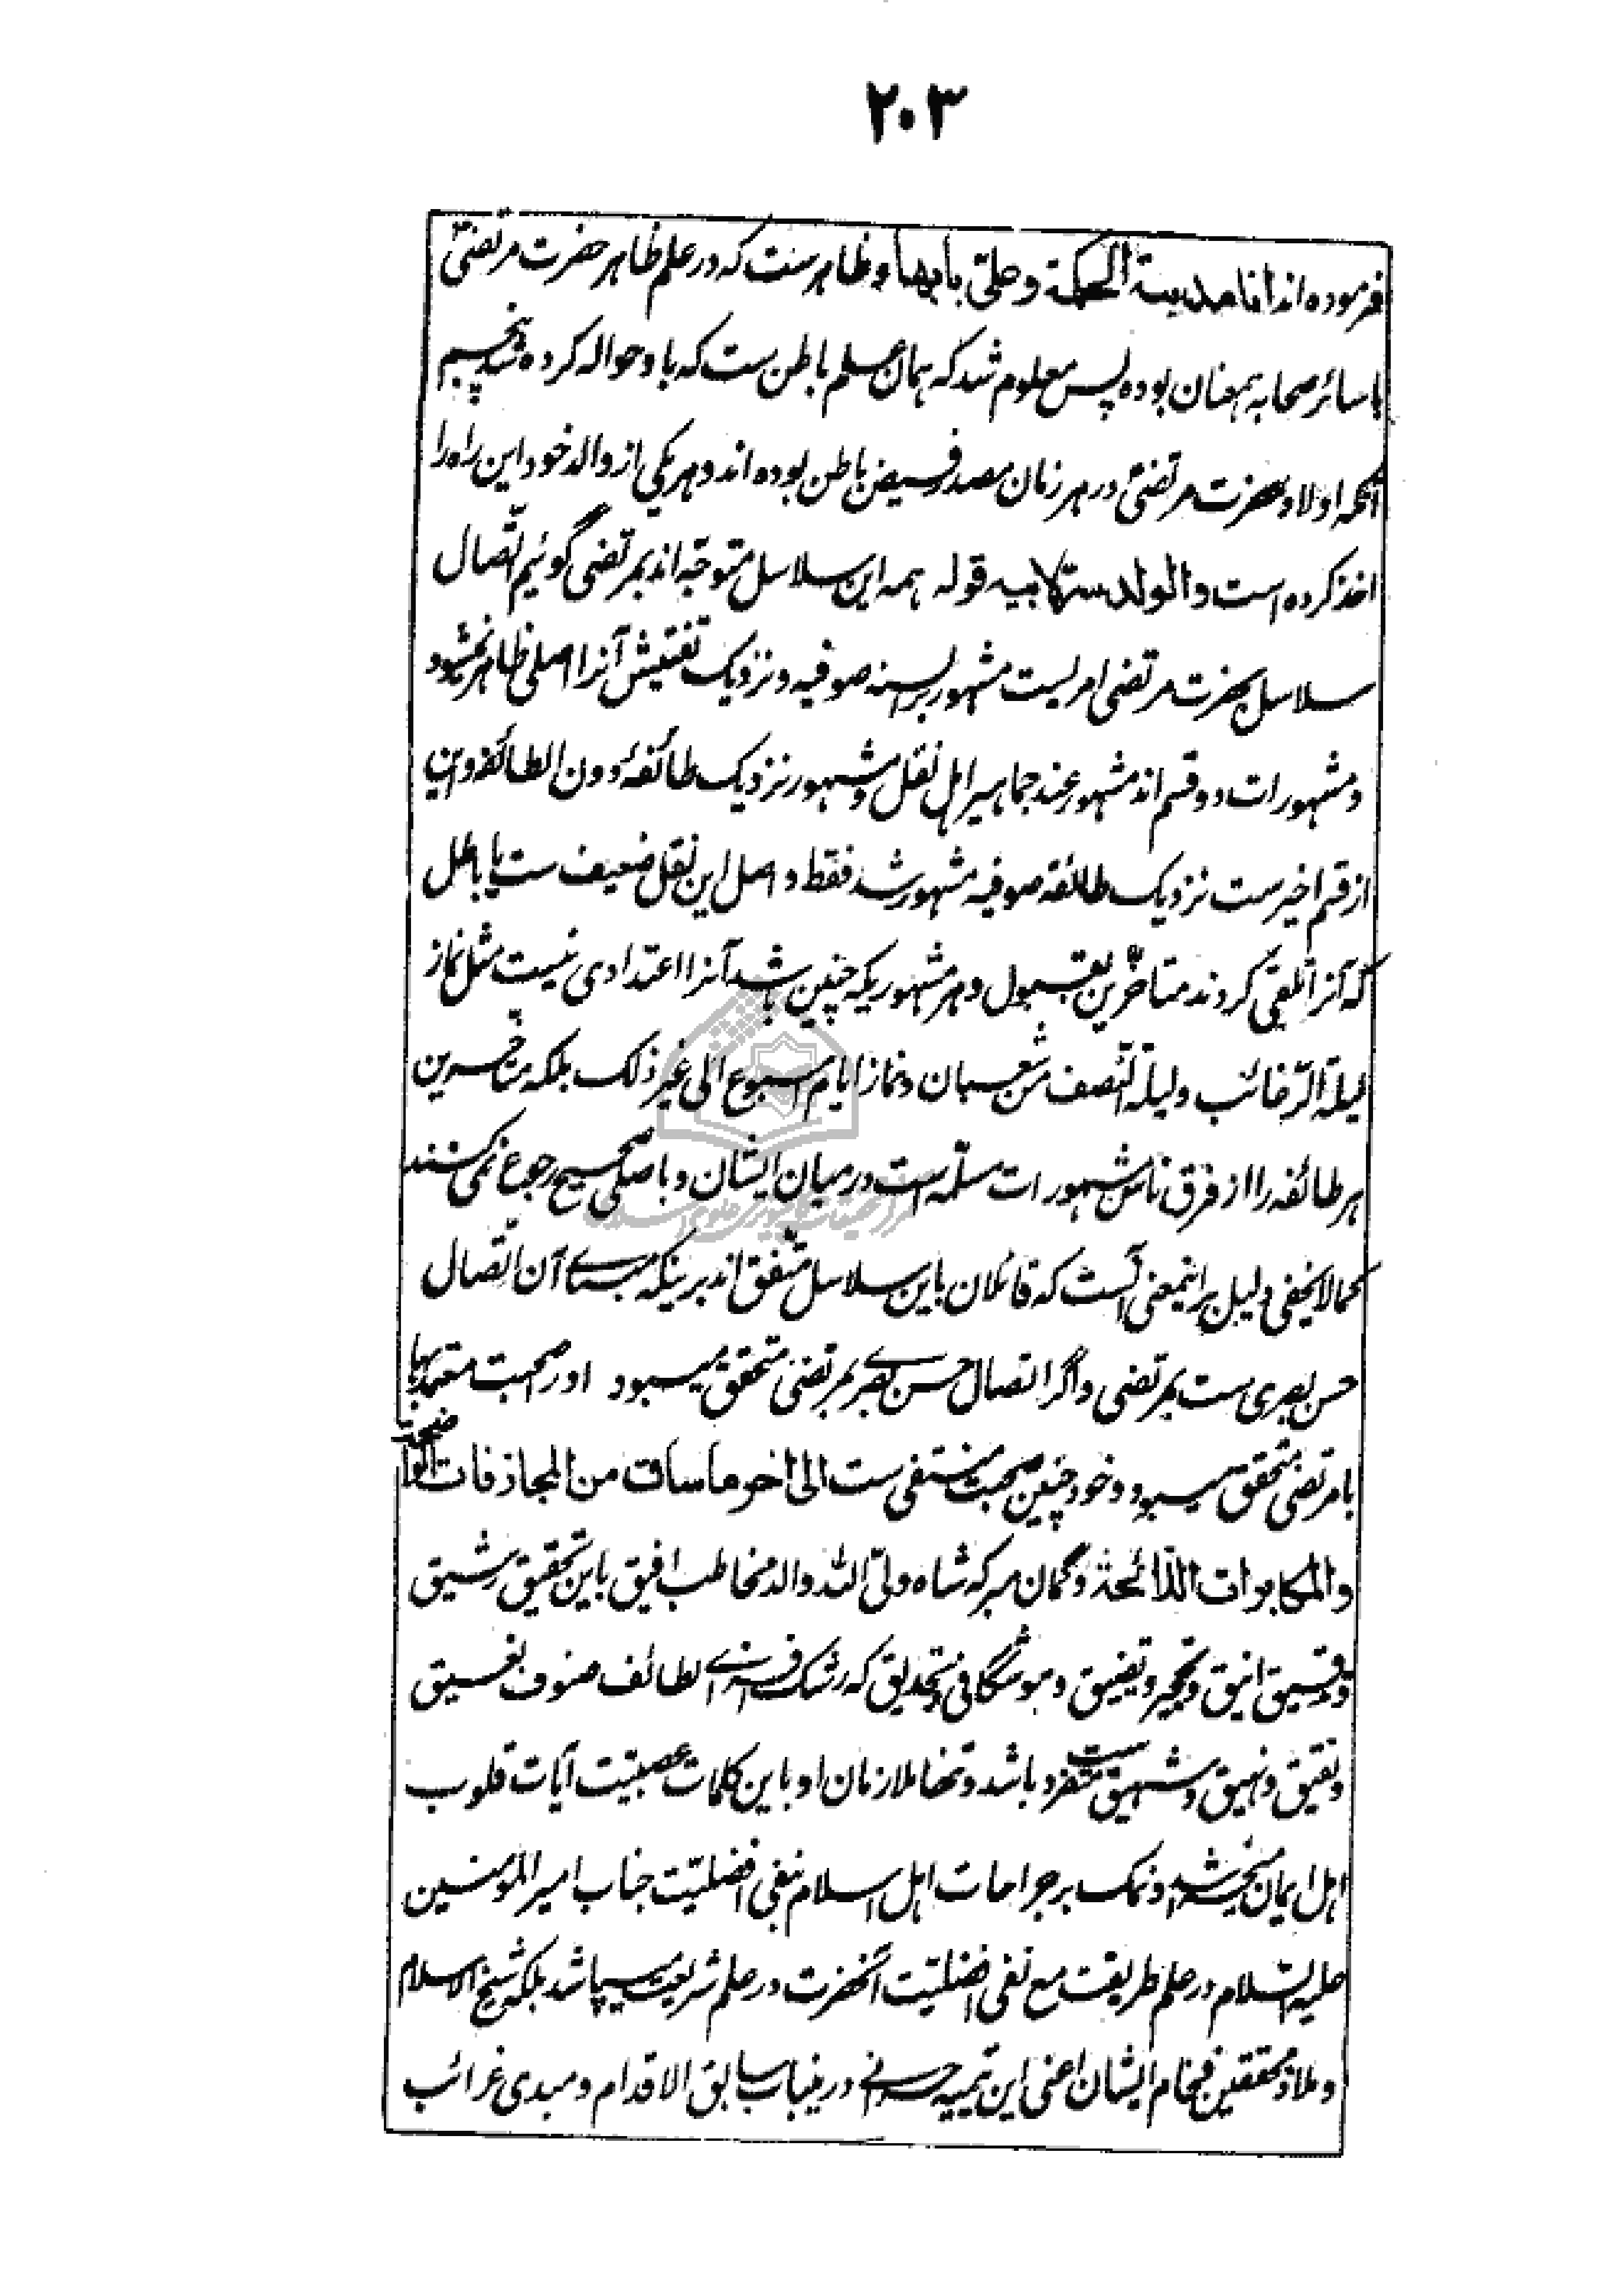 ۲۰۳
فرموده اند انا مدینة الحکمة و علیّ بابها و ظاهرست که در علم ظاهر حضرت مرتضیؑ
با سائر صحابه همعنان بوده پس معلوم شد که همان علم باطن ست که با و حواله کرده شد پنجم
آنکه اولاد حضرت مرتضیؑ در هر زمان مصدر فیض باطن بوده اند و هر یکی از والد خود این راه را
اخذ کرده است والولد سرّ لابیه قوله همه این سلاسل متوجّه اند بمرتضی گوئیم اتّصال
سلاسل بحضرت مرتضی امریست مشهور بر السنه صوفیه و نزدیک تفتیش آنرا اصلی ظاهر نمیشود
و مشهورات دو قسم اند مشهور عند جماهیر اهل نقل و مشهور نزدیک طائفهٔ دون الطائفه و این
از قسم اخیرست نزدیک طائفهٔ صوفیه مشهور شد فقط و اصل این نقل ضعیف ست یا باطل
که آنرا تلقی کردند متاخّرین بقبول و هر مشهوریکه چنین باشد آنرا اعتدادی نیست مثل نماز
لیلة الرّغائب و لیلة النّصف من شعبان و نماز ایام اسبوع الی غیر ذلک بلکه متاخّرین
هر طائفه را از فرق ناس مشهورات مسلّمه است در میان ایشان و باصلی صحیح رجوع نمی کنند
کما لا یخفی و دلیل بر اینمعنی آنست که قائلان باین سلاسل متّفق اند برینکه مبنای آن اتّصال
حسن بصری ست بمرتضی و اگر اتصال حسن بصری بمرتضی متحقق میبود او را صحبت معتد بها
با مرتضی متحقق میبود و خود چنین صحبت منتفی ست الی اخر ما ساق من المجازفات الواضحة
والمکابرات اللائحة و گمان مبر که شاه ولیّ الله والد مخاطب افیق باین تحقیق رشیق
و تدقیق انیق و تحجیر و تضییق و موشگافی و تحدیق که رشک افزای لطائف صنوف نغسیق
و نقیق و نهیق و شهیق ست متفرد باشد و تنها ملازمان او باین کلمات عصبیّت آیات قلوب
اهل ایمان میخراشد و نمک بر جراحات اهل اسلام بنفی افضلیّت جناب امیر المومنین
علیه السّلام در علم طریقت مع نفی افضلیّت آنحضرت در علم شریعت میپاشد بلکه شیخ الاسلام
و ملاذ محققین فخام ایشان اعنی ابن تیمیه حرانی درینباب سابق الاقدام و مبدی غرائب